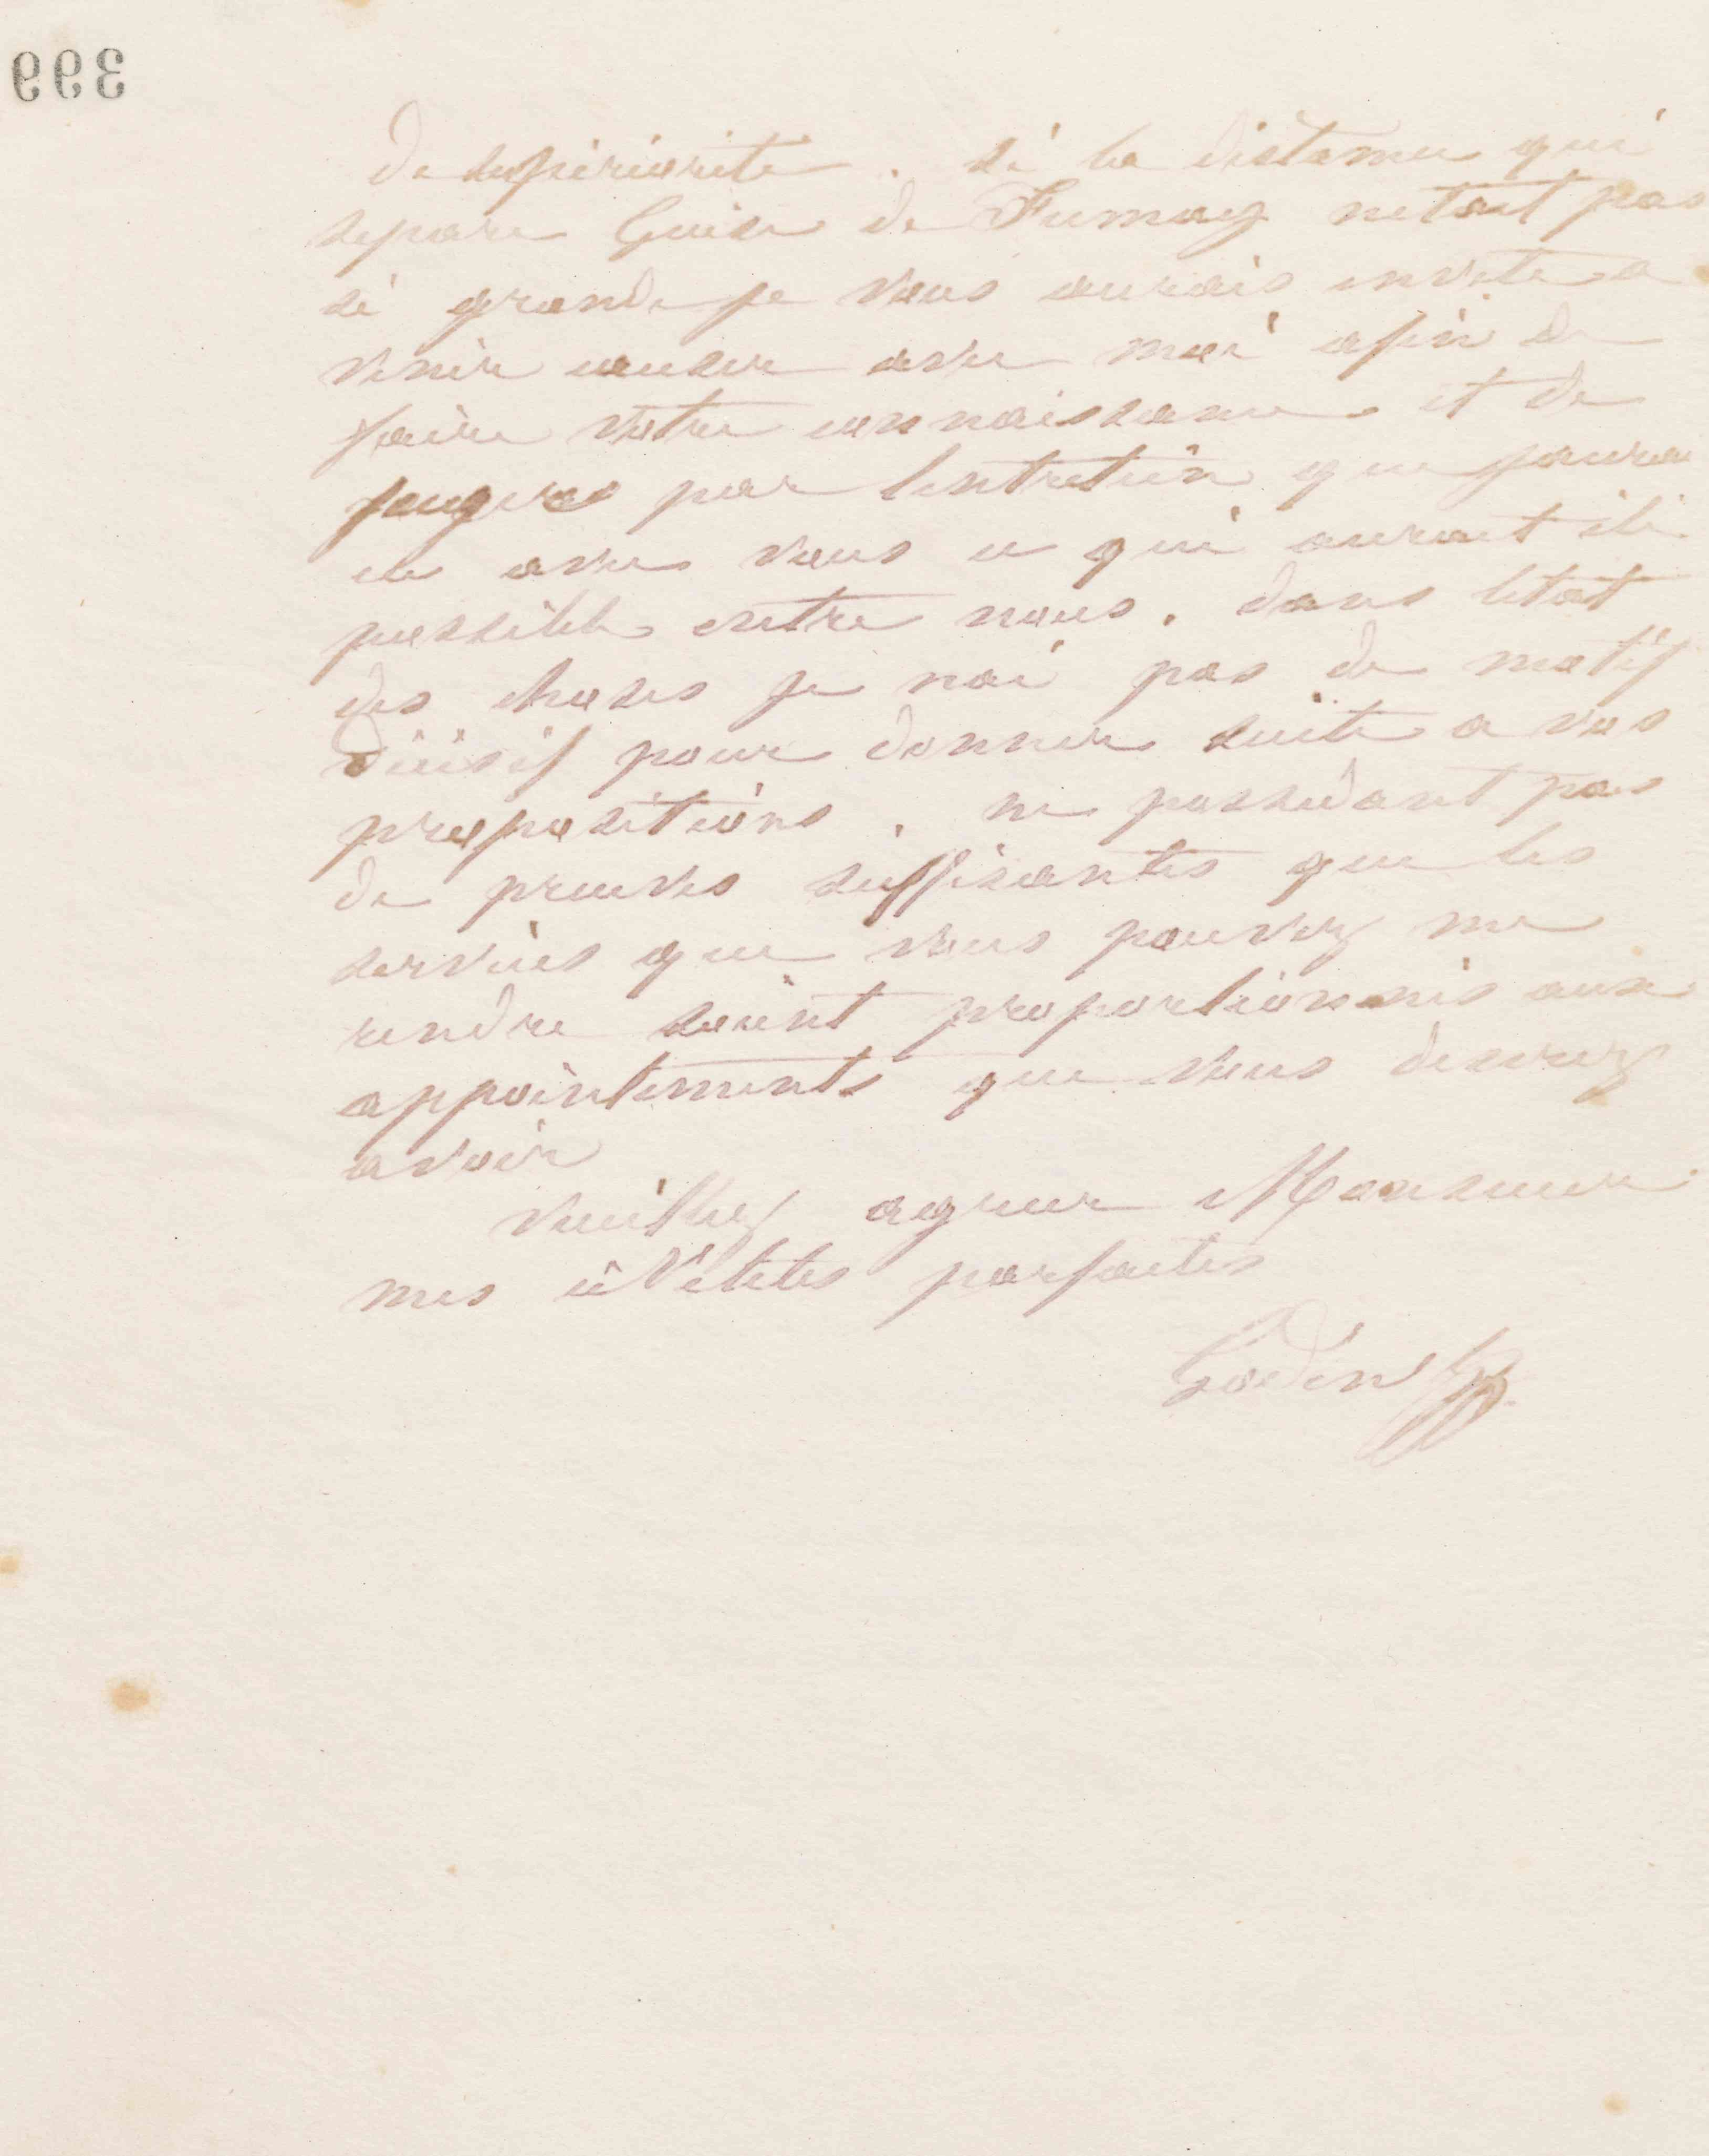 399
de supériorité. si la distance qui
separe Guise de Fumay netait pas
si grande je vous aurais invité a
venir causer avec moi afin de
faire votre connaissance et de
juger par lentretien que jaurai
eu avec vous ce qui aurait été
possible entre nous. dans létat
des choses je nai pas de motif
décisif pour donner suite a vos
propositions, ne possédant pas
de preuves suffisantes que les
services que vous pouvez me
rendre soient proportionnés aux
appointements que vous desirez
avoir
veuillez agreer Monsieur
mes civilités parfaites
Godin